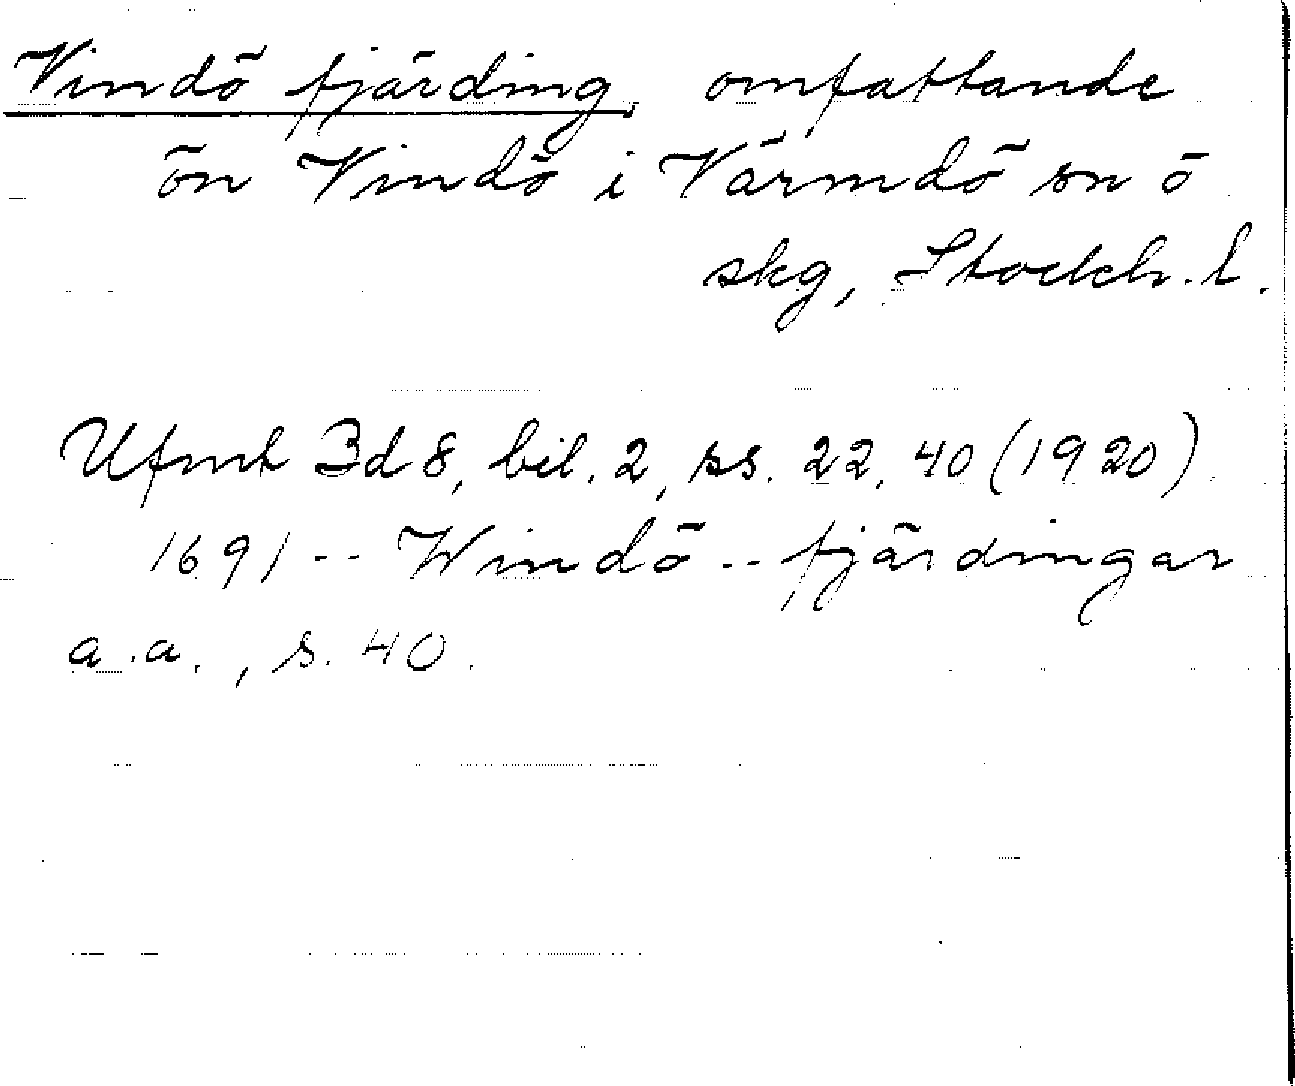 Vindö fjärding, omfattande
ön Vindö i Värmdö sn ö
skg, Stockh. l.
Ufmt Bd 8, bil. 2, ss. 22, 40 (1920)
1691 -- Windö -- fjärdingar
a.a., s. 40.